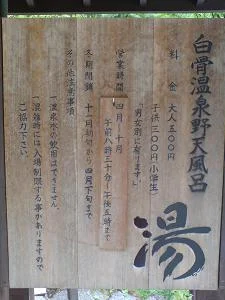 白骨温泉野天風呂
湯
料金 大人五〇〇円
子供三〇〇円(小学生)
「男女別に有ります」
営業時間 四月~十月
午前八時三十分~午後五時まで
冬期閉鎖 十一月初旬から四月下旬まで
その他注意事項
一温泉水の飲用はできません
一混雑時には入場制限する事がありますので
ご協力下さい。